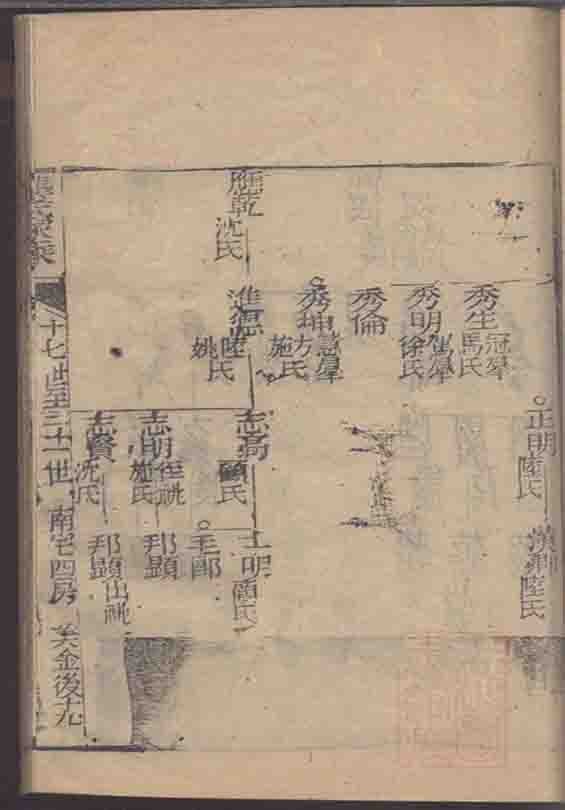 正明 陸氏
陸氏
秀生 冠羣 馬氏
秀明 徐氏
秀倫
秀坤 慧羣 方氏 施氏
應乾 沈氏
進德 陸氏 姚氏
志高 顧氏
士明 顧氏
毛郎
志明 侄祧 施氏
邦顯
志賢 沈氏
邦顯 出祧
十七世至三十一世 南宅四房 美金後